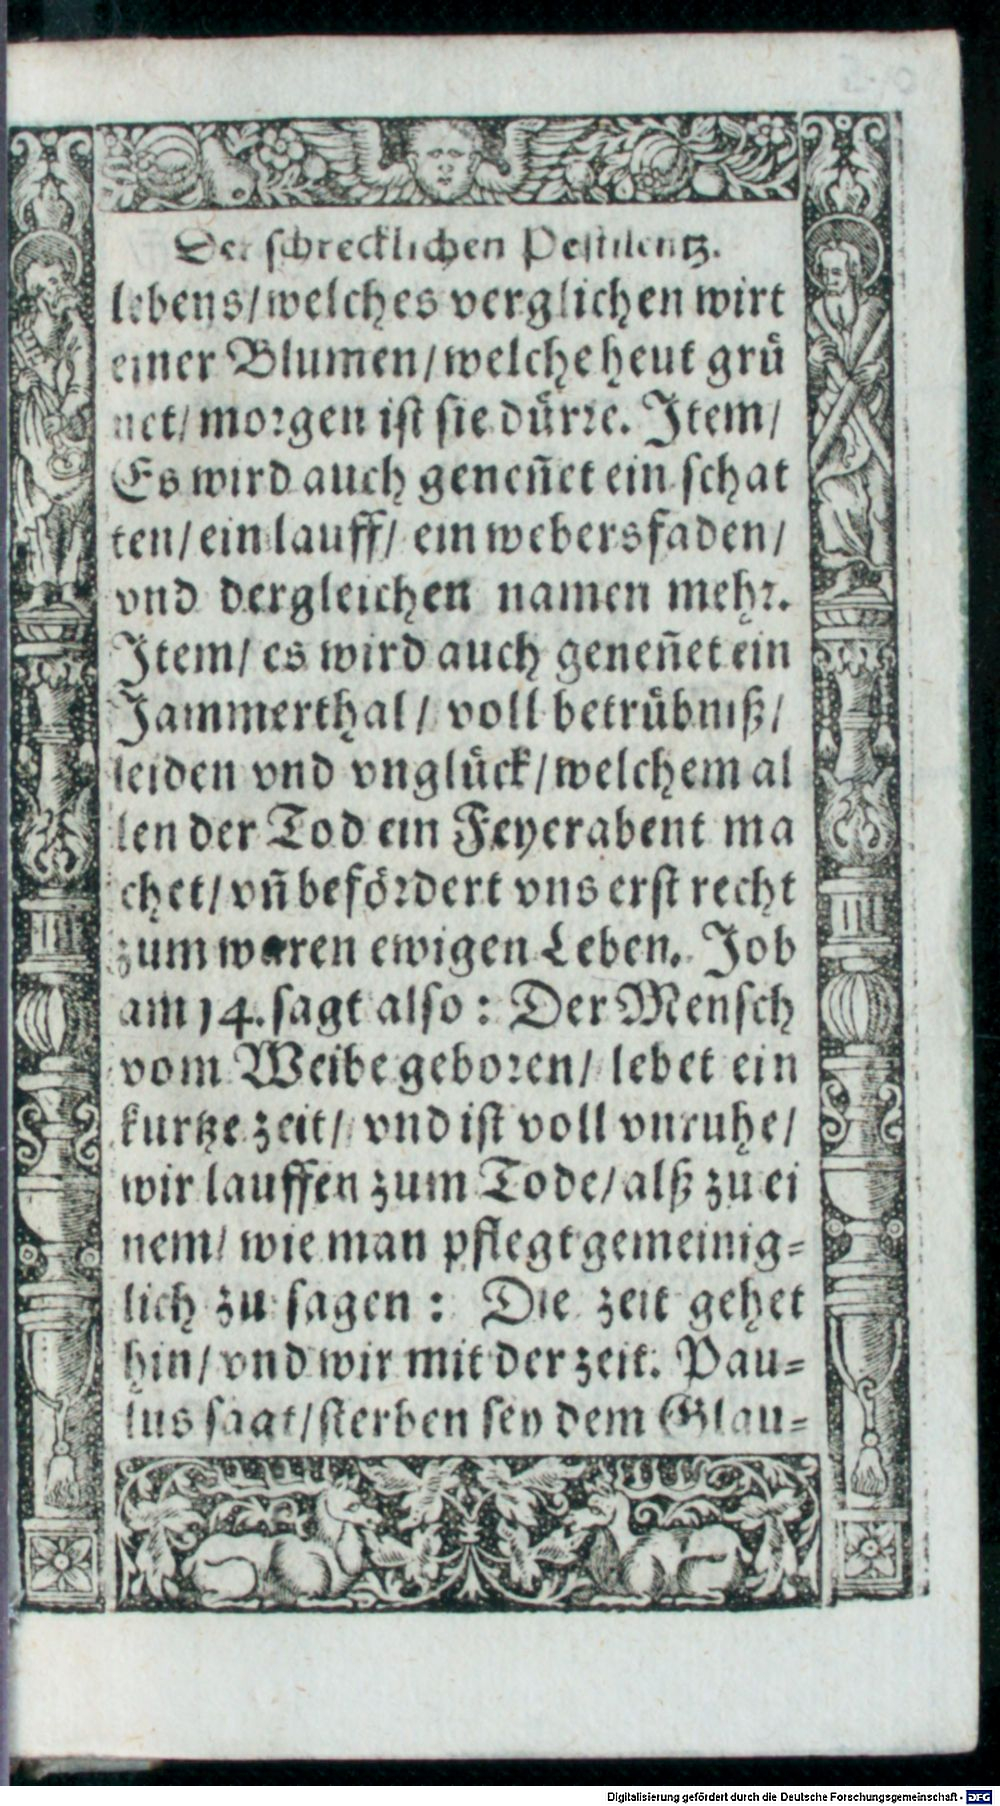 Der schrecklichen Pestilentz.
lebens/welches verglichen wirt
einer Blumen/welche heut grü
net/morgen ist sie dürre. Item/
Es wird auch geneñet ein schat
ten/ein lauff/ ein webersfaden/
vnd dergleichen namen mehr.
Item/es wird auch geneñet ein
Jammerthal/ voll betrübniß/
leiden vnd vnglück/welchem al
len der Tod ein Feyerabent ma
chet/vñ befördert vns erst recht
zum waren ewigen Leben. Job
am 14. sagt also: Der Mensch
vom Weibe geboren/ lebet ein
kurtze zeit/ vnd ist voll vnruhe/
wir lauffen zum Tode/alß zu ei
nem/ wie man pflegt gemeinig=
lich zu sagen: Die zeit gehet
hin/vnd wir mit der zeit. Pau=
lus sagt/sterben sey dem Glau=
Digitalisierung gefördert durch die Deutsche Forschungsgemeinschaft - DFG